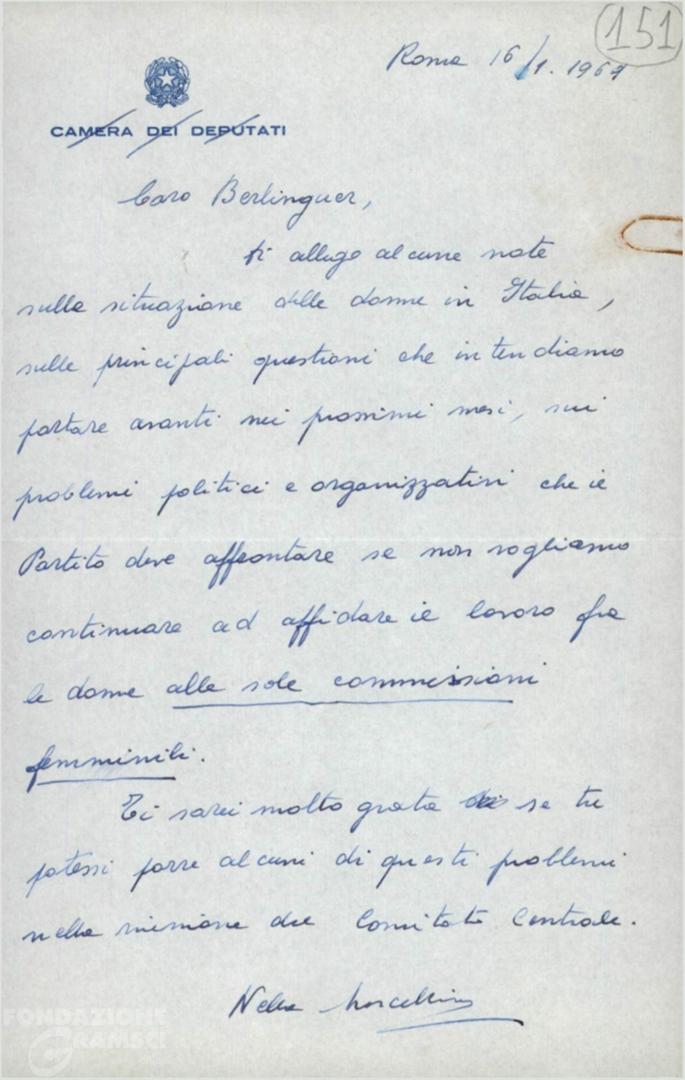 151
Roma 16/1. 1967
CAMERA DEI DEPUTATI
Caro Berlinguer,
ti allego alcune note
sulla situazione delle donne in Italia,
sulle principali questioni che intendiamo
portare avanti nei prossimi mesi, sui
problemi politici e organizzativi che il
Partito deve affrontare se non vogliamo
continuare ad affidare il lavoro fra
le donne alle sole commissioni
femminili.
Ti sarei molto grata se tu
potessi porre alcuni di questi problemi
nella riunione del Comitato Centrale.
Nella Marcellino
FONDAZIONE
GRAMSCI